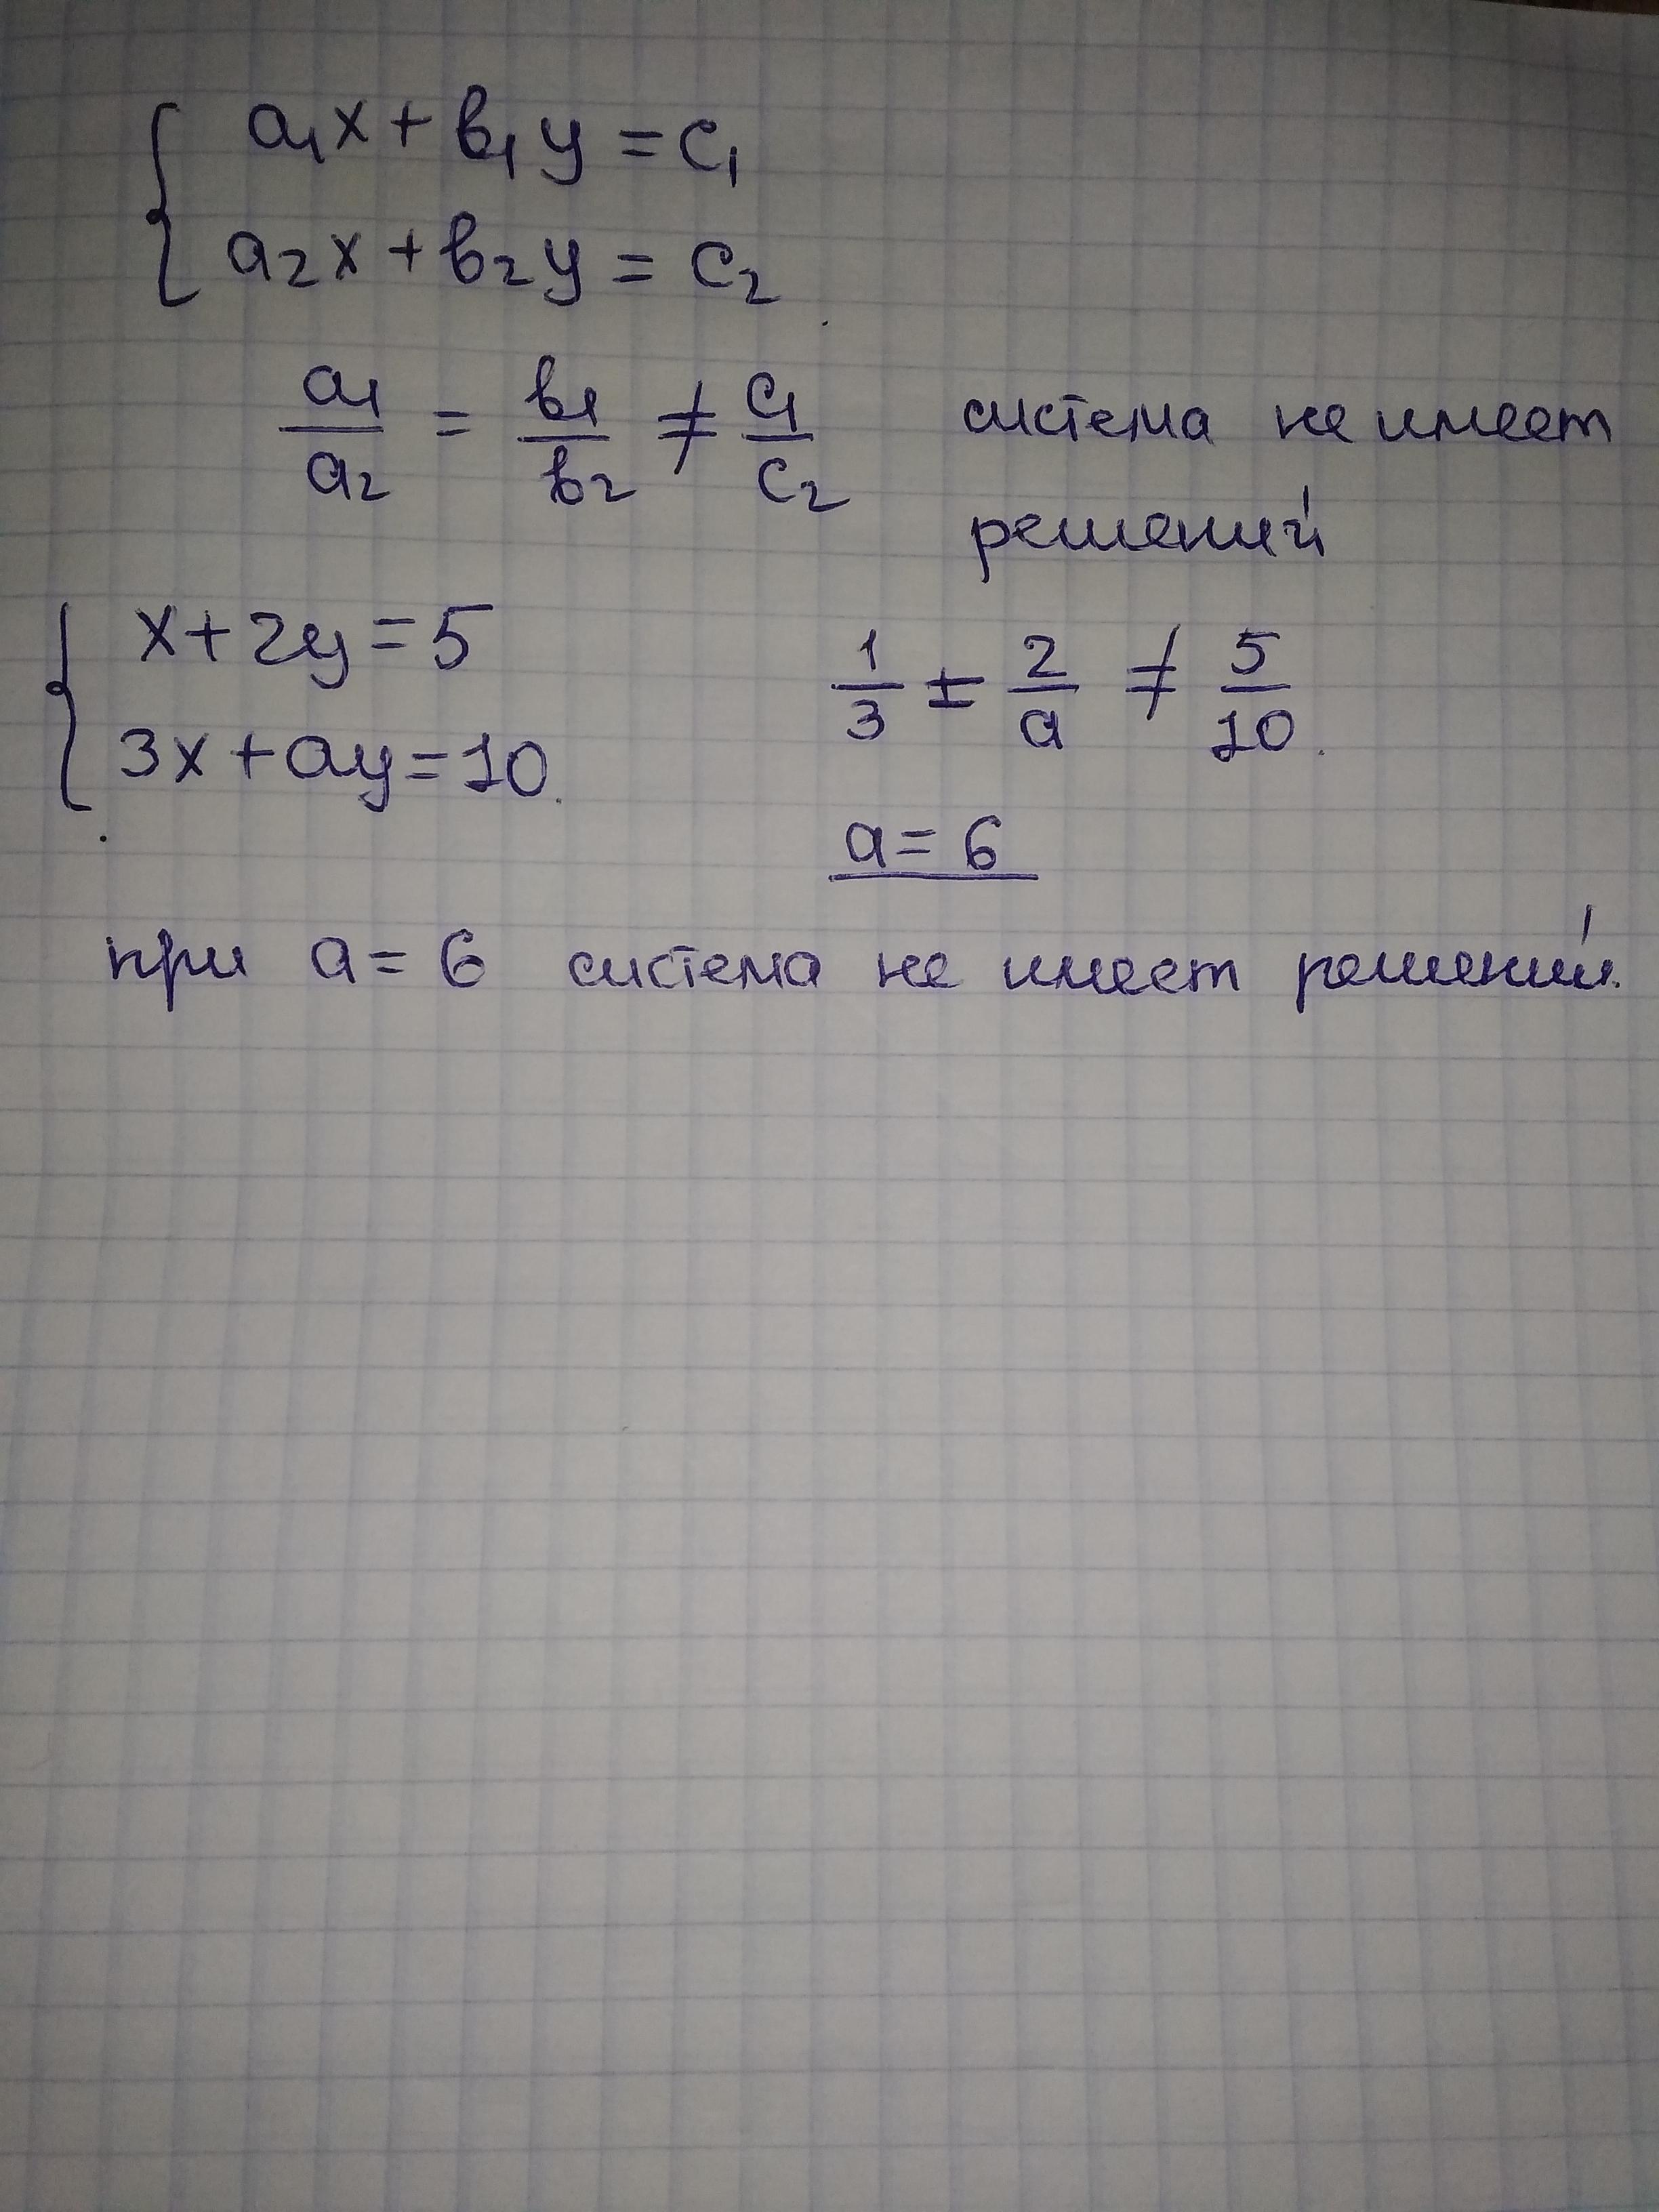 { a₁x + b₁y = c₁
a₂x + b₂y = c₂
a₁/a₂ = b₁/b₂ ≠ c₁/c₂ система не имеет
решений
{ x + 2y = 5
3x + ay = 10.
1/3 = 2/a ≠ 5/10.
a = 6
при a = 6 система не имеет решений.